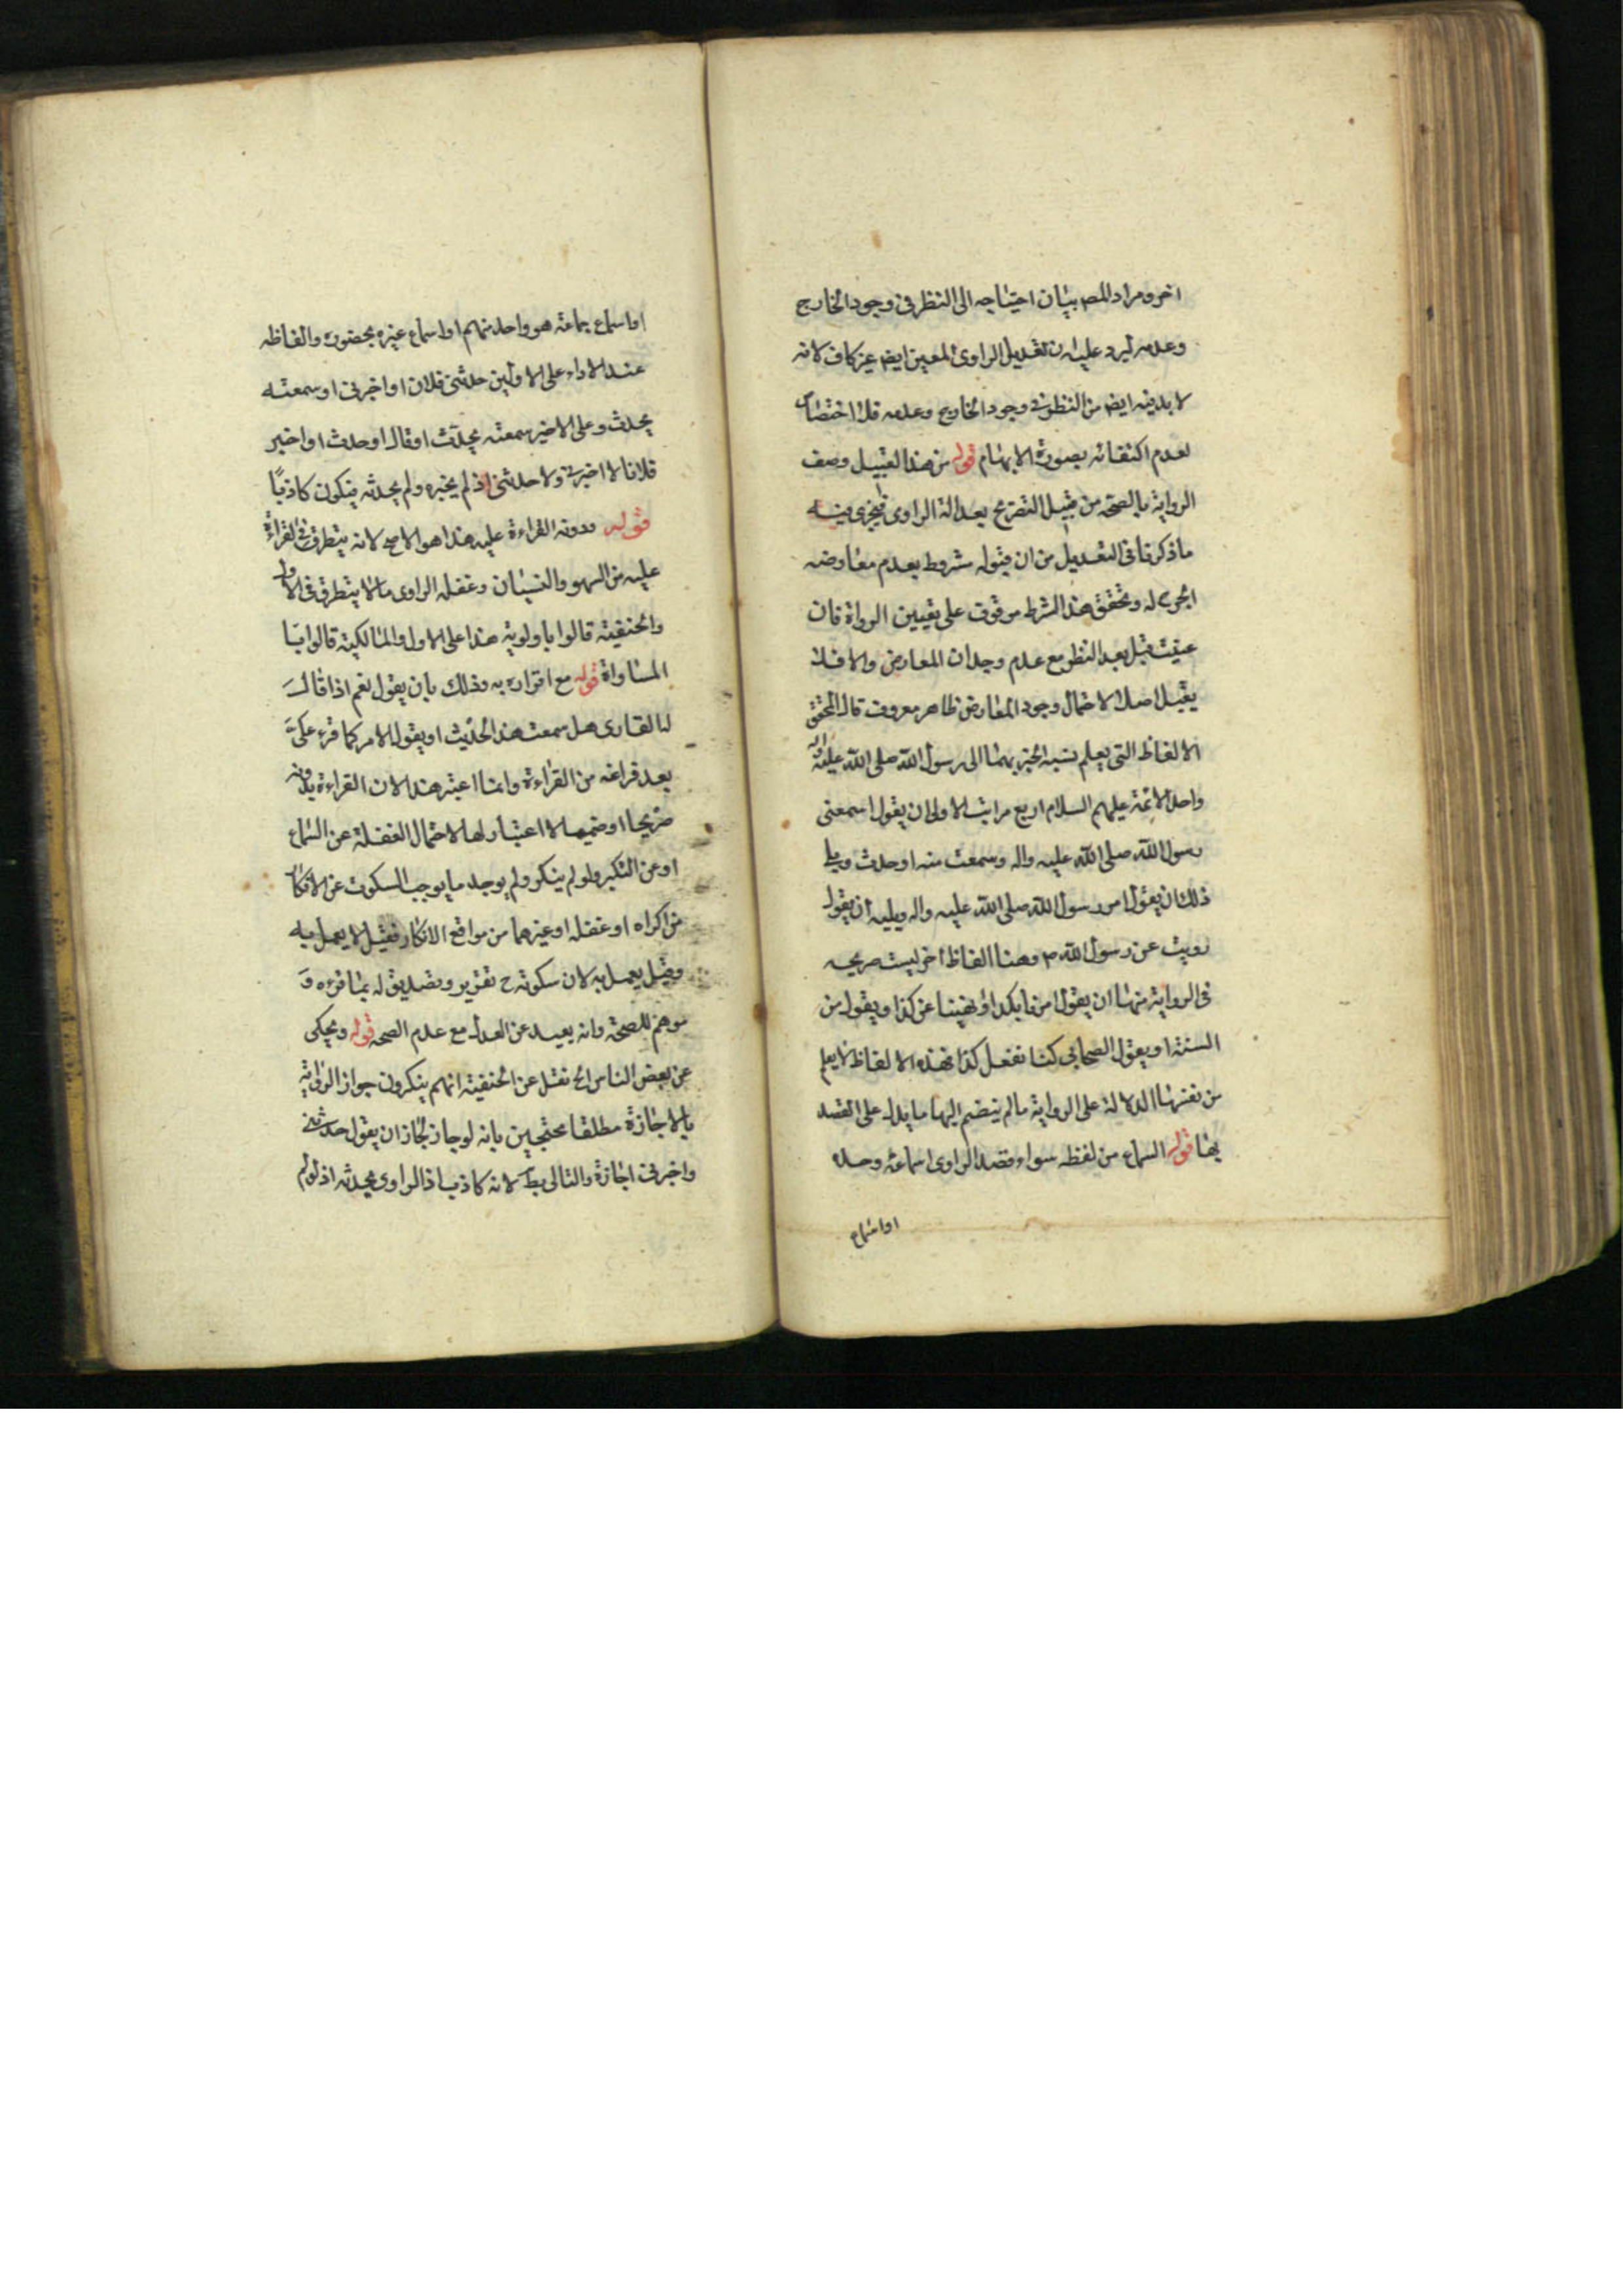 اخر ومراد المص بيان احتياجه الى النظر فى وجود الخارج
وعدمه ليرد عليه ان تعديل الراوى المعين ايض غير كاف لانه
لا بد فيه ايض من النظر فى وجود الخارج وعدمه فلا اختصاص
لعدم اكتفائه بصورة الابهام قوله من هذا القبيل وصف
الرواية بالصحة من قبيل التصريح بعدالة الراوى فيجرى فيه
ما ذكرنا فى التعديل من ان قبوله مشروط بعدم معارضه
الجرح له وتحقق هذا الشرط موقوف على تعيين الرواة فان
عينت قبل بعد النظر مع عدم وجدان المعارض والا فلا
يقبل اصلا لاحتمال وجود المعارض ظاهر معروف قال المحقق
الالفاظ التى يعلم نسبة الخبر بهما الى رسول الله صلى الله عليه واله
واحد الائمة عليهم السلام اربع مراتب الاولى ان يقول اسمعنى
رسول الله صلى الله عليه واله وسمعت منه او حدث ويلى
ذلك ان يقول امر رسول الله صلى الله عليه واله ويليه ان يقول
رويت عن رسول الله ص وهنا الفاظ اخر ليست صريحه
فى الرواية منها ان يقول امرنا بكذا او نهينا عن كذا ويقول من
السنة او يقول الصحابى كنا نفعل كذا فهذه الالفاظ لا يعلم
من نفسها الدلالة على الرواية ما لم ينضم اليها ما يدل على القصد
بها قوله السماع من لفظه سواء قصد الراوى اسماعه وحده
او اسماع
او اسماع جماعة هو واحد منهم او اسماع غيره بحضوره والفاظه
عند الاداء على الاولين حدثنى فلان او اخبرنى او سمعته
يحدث وعلى الاخير سمعته يحدث او قال او حدث او اخبر
فلانا لا اخبرنى ولا حدثنى اذ لم يخبره ولم يحدثه فيكون كاذبًا
قوله ودونه القراءة عليه هذا هو الاصح لانه يتطرق فى القراءة
عليه من السهو والنسيان وغفلة الراوى ما لا يتطرق فى الاول
والحنفية قالوا باولوية هذا على الاول والمالكية قالوا با
المساواة قوله مع اقراره به وذلك بان يقول نعم اذا قال
له القارى هل سمعت هذا الحديث او يقول الامر كما قرء علىّ
بعد فراغه من القراءة وانما اعتبر هذا لان القراءة بدونه
صريحا او ضمنا لا اعتبار لها لاحتمال الغفلة عن السماع
او عن النكير ولو لم ينكر ولم يوجد ما يوجب السكوت عن الانكار
من اكراه او غفلة او غيرهما من مواقع الانكار فقيل لا يعمل به
وقيل يعمل به لان سكوته ح تقرير وتصديق له بما قرءه و
موهم للصحة وانه بعيد عن العدل مع عدم الصحه قوله ويحكى
عن بعض الناس الخ نقل عن الحنفية انهم ينكرون جواز الرواية
بالاجازة مطلقا محتجين بانه لو جاز لجاز ان يقول حدثنى
واخبرنى اجازة والتالى بط لانه كاذب اذ الراوى يحدثه اذ لو لم